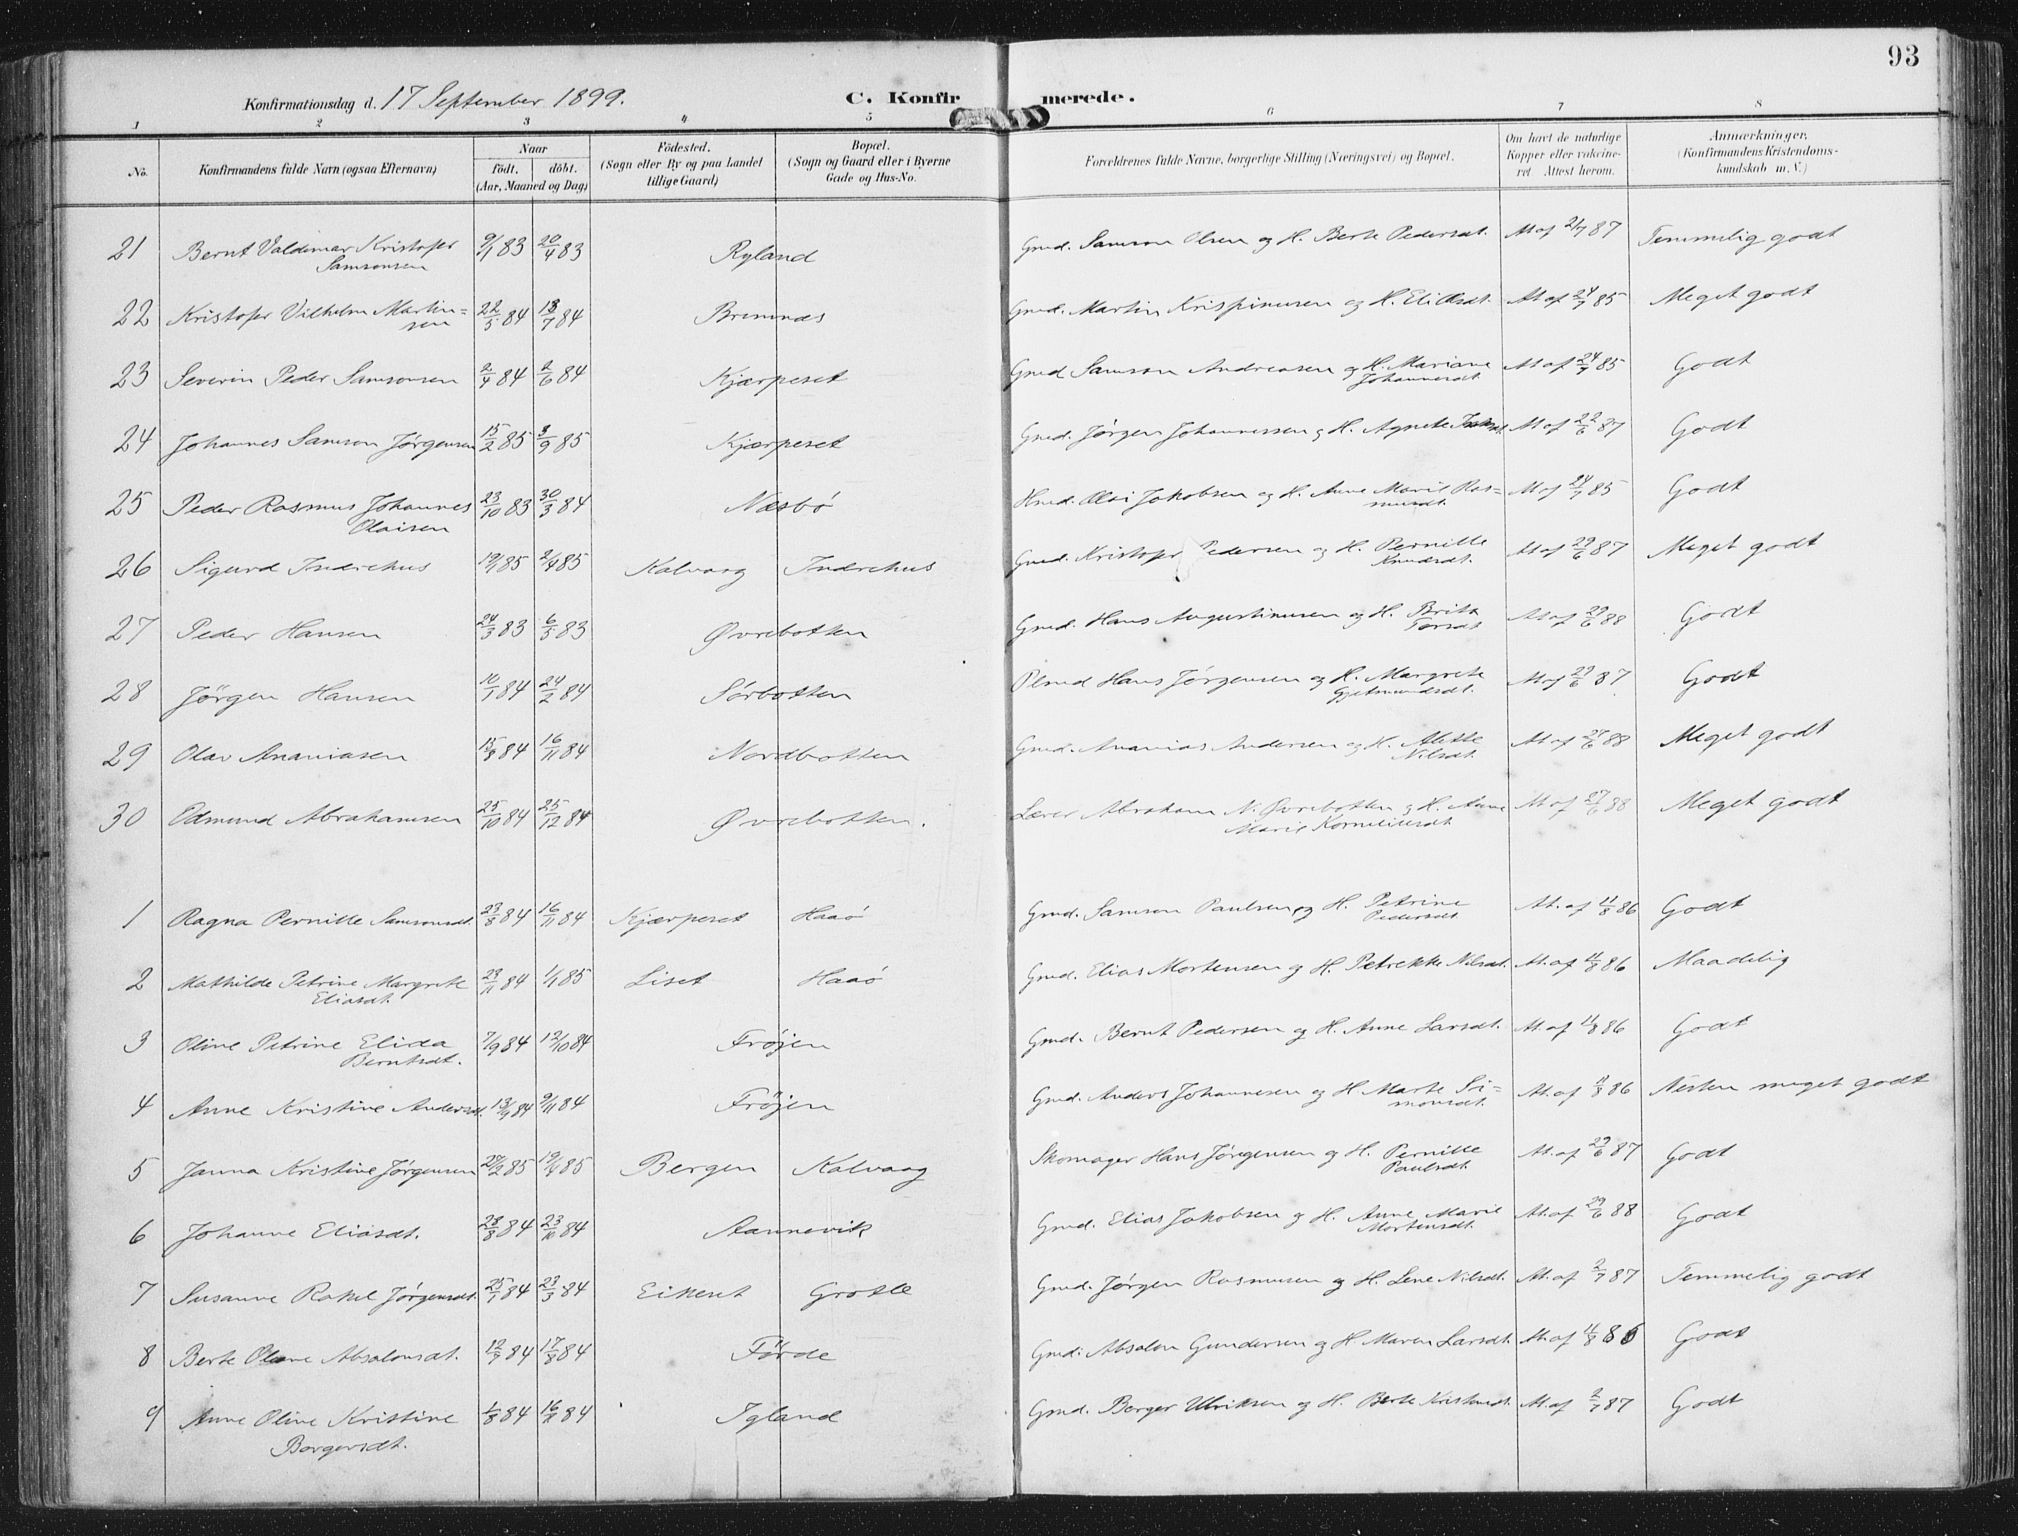 93
Konfirmationsdag d. 17 September 1899. C. Konfirmerede.
1 2 3 4 5 6 7 8
No. Konfirmandens fulde Navn (ogsaa Efternavn) Naar født. døbt. (Aar, Maaned og Dag) Fødested. (Sogn eller By og paa Landet tillige Gaard) Bopæl. (Sogn og Gaard eller i Byerne Gade og Hus-No. Forældrenes fulde Navne, borgerlige Stilling (Næringsvei) og Bopæl. Om havt de naturlige Kopper eller vakcineret Attest herom. Anmærkninger. (Konfirmandens Kristendomskundskab m. V.)
21 Bernt Valdemar Kristofer 9/1 83 20/4 83 Ryland Gmd. Samson Olsen og H. Berte Pedersdt. At af 2/7 87 Temmelig godt
Samsonsen
22 Kristofer Vilhelm Martin= 22/5 84 13/7 84 Bremnæs Gmd. Martin Krispinusen og H. Eli Olsdt. At af 24/7 85 Meget godt
sen
23 Severin Peder Samsonsen 2/4 84 2/6 84 Kjærpeset Gmd Samson Andreasen og H. Mariane At af 24/7 85 Godt
Johannesdt.
24 Johannes Samson Jørgensen 15/2 85 3/9 85 Kjærpeset Gmd. Jørgen Johannessen og H. Agnete At af 22/6 87 Godt
25 Peder Rasmus Johannes 23/10 83 30/3 84 Næsbø Hmd. Olai Jakobsen og H. Anne Marie Ras= At af 24/7 85 Godt
Olaisen musdt.
26 Sigurd Indrehus 19/1 85 2/4 85 Kalvaag Indrehus Gmd. Kristofer Pedersen og H. Pernille At af 29/6 87 Meget godt
Knudsdt.
27 Peder Hansen 24/3 83 6/5 83 Øvrebotten Gmd. Hans Augustinusen og H. Brita At af 29/6 88 Godt
28 Jørgen Hansen 10/1 84 24/2 84 Sørbotten Plmd Hans Jørgensen og H. Margrete At af 29/6 87 Godt
Gjetmundsdt.
29 Olav Ananiasen 15/8 84 16/11 84 Nordbotten Gmd. Ananias Andersen og H. Alette At af 29/6 88 Meget godt
Nilsdt.
30 Edmund Abrahamsen 25/10 84 25/12 84 Øvrebotten. Lærer Abraham N. Øvrebotten og H. Anne At af 27/6 88 Meget godt
Marie Korneliusdt
1 Ragna Pernille Samsonsdt. 23/8 84 16/11 84 Kjærpeset Haaø Gmd. Samson Paulsen og H. Petrine At. af 11/8 86 Godt
Pedersdt
2 Mathilde Petrine Margrete 23/11 84 1/1 85 Liset Haaø Gmd. Elias Mortensen og H. Petrekke Nilsdt. At. af 11/8 86 Maadelig
Eliasdt.
3 Oline Petrine Elida 7/9 84 12/10 84 Frøjen Gmd. Bernt Pedersen og H. Anne Larsdt. At af 11/8 86 Godt
Berntsdt.
4 Anne Kristine Andersdt. 13/9 84 9/11 84 Frøjen Gmd. Anders Johannesen og H. Marte Si= At. af 11/8 86 Næsten meget godt
monsdt.
5 Janna Kristine Jørgensen 27/2 85 19/4 85 Bergen Kalvaag Skomager Hans Jørgensen og H. Pernille At. af 29/6 87 Godt
Paulsdt.
6 Johanne Eliasdt. 28/8 84 23/10 84 Aannevik Gmd. Elias Jakobsen og H. Anne Marie At. af 29/6 88 Godt
Mortensdt.
7 Susanne Rakel Jørgensdt. 25/1 84 23/3 84 Eikeset Grotle Gmd. Jørgen Rasmusen og H. Lene Nilsdt. At. af 2/7 87 Temmelig godt
8 Berte Olave Absalonsdt. 12/7 84 17/8 84 Førde Gmd. Absalon Gundersen og H. Maren Larsdt. At. af 11/8 86 Godt
9 Anne Oline Kristine 1/8 84 16/11 84 Igland Gmd. Borger Ulriksen og H. Berte At. af 2/7 87 Godt
Borgersdt.